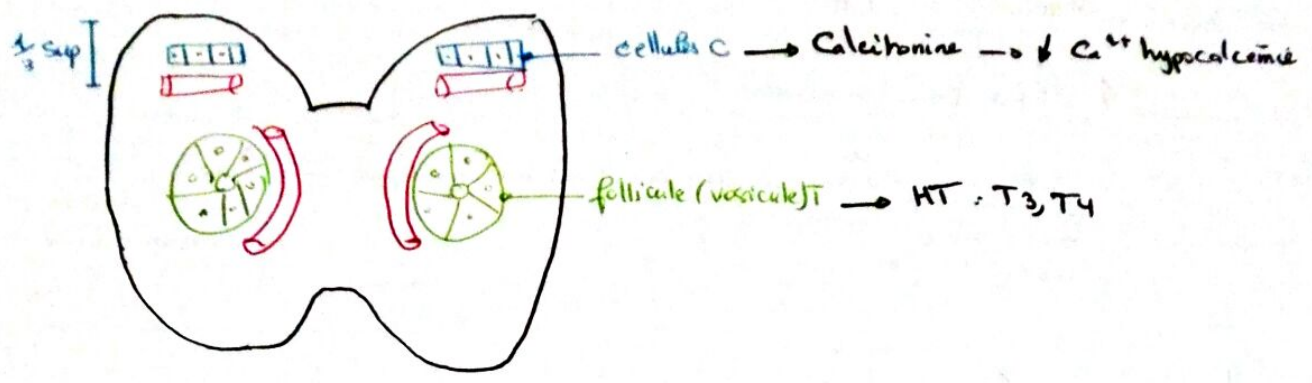 1/3 Sup
cellules C → Calcitonine → ↓ Ca⁺⁺ hypocalcémie
follicule (vésicule)T → HT : T3, T4